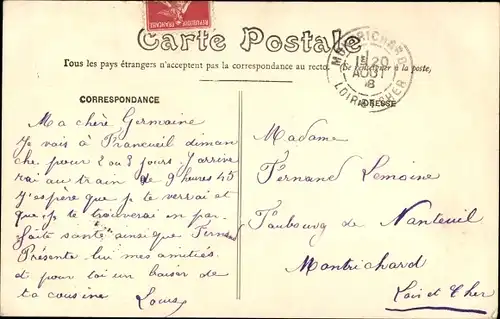 Carte Postale
Tous les pays étrangers n'acceptent pas la correspondance au recto. Se renseigner à la poste,
MONTRICHARD
20
AOUT
LOIR-ET-CHER
CORRESPONDANCE
ADRESSE
Ma chère Germaine
Je vais à Francueil diman
che pour 2 ou 3 jours. J'arrive
rai au train de 9 heures 45
J'espère que je te verrai et
que je te trouverai en par
faite santé ainsi que Fernand
Présente lui mes amitiés
et pour toi un baiser de
ta cousine
Madame
Fernand Lemoine
Faubourg de Nanteuil
Montrichard
Loir et Cher